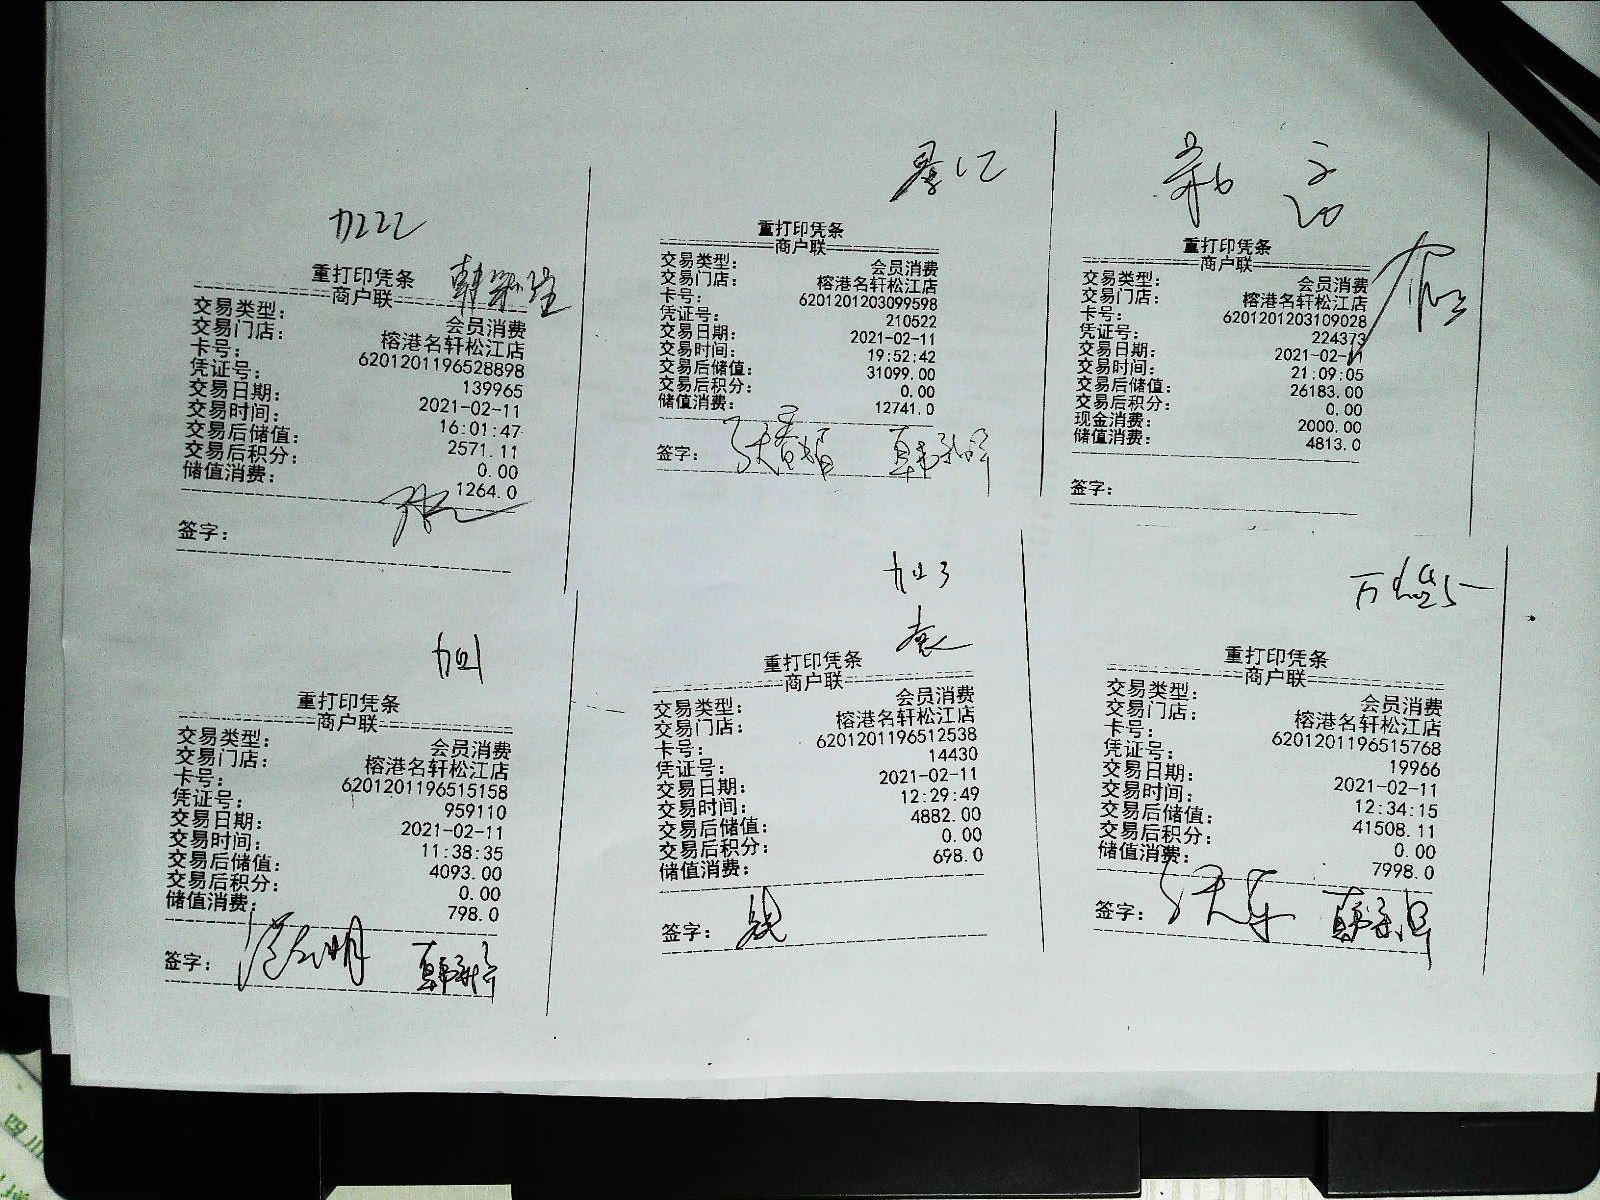 加222
重打印凭条
商户联
交易类型： 会员消费
交易门店： 榕港名轩松江店
卡号： 6201201196528898
凭证号： 139965
交易日期： 2021-02-11
交易时间： 16:01:47
交易后储值： 2571.11
交易后积分： 0.00
储值消费： 1264.0
签字：
重打印凭条
商户联
交易类型： 会员消费
交易门店： 榕港名轩松江店
卡号： 6201201203099598
凭证号： 210522
交易日期： 2021-02-11
交易时间： 19:52:42
交易后储值： 31099.00
交易后积分： 0.00
储值消费： 12741.0
签字：
重打印凭条
商户联
交易类型： 会员消费
交易门店： 榕港名轩松江店
卡号： 6201201203109028
凭证号： 224373
交易日期： 2021-02-11
交易时间： 21:09:05
交易后储值： 26183.00
交易后积分： 0.00
现金消费： 2000.00
储值消费： 4813.0
签字：
重打印凭条
商户联
交易类型： 会员消费
交易门店： 榕港名轩松江店
卡号： 6201201196515158
凭证号： 959110
交易日期： 2021-02-11
交易时间： 11:38:35
交易后储值： 4093.00
交易后积分： 0.00
储值消费： 798.0
签字：
加3
袁
重打印凭条
商户联
交易类型： 会员消费
交易门店： 榕港名轩松江店
卡号： 6201201196512538
凭证号： 14430
交易日期： 2021-02-11
交易时间： 12:29:49
交易后储值： 4882.00
交易后积分： 0.00
储值消费： 698.0
签字：
重打印凭条
商户联
交易类型： 会员消费
交易门店： 榕港名轩松江店
卡号： 6201201196515768
凭证号： 19966
交易日期： 2021-02-11
交易时间： 12:34:15
交易后储值： 41508.11
交易后积分： 0.00
储值消费： 7998.0
签字：